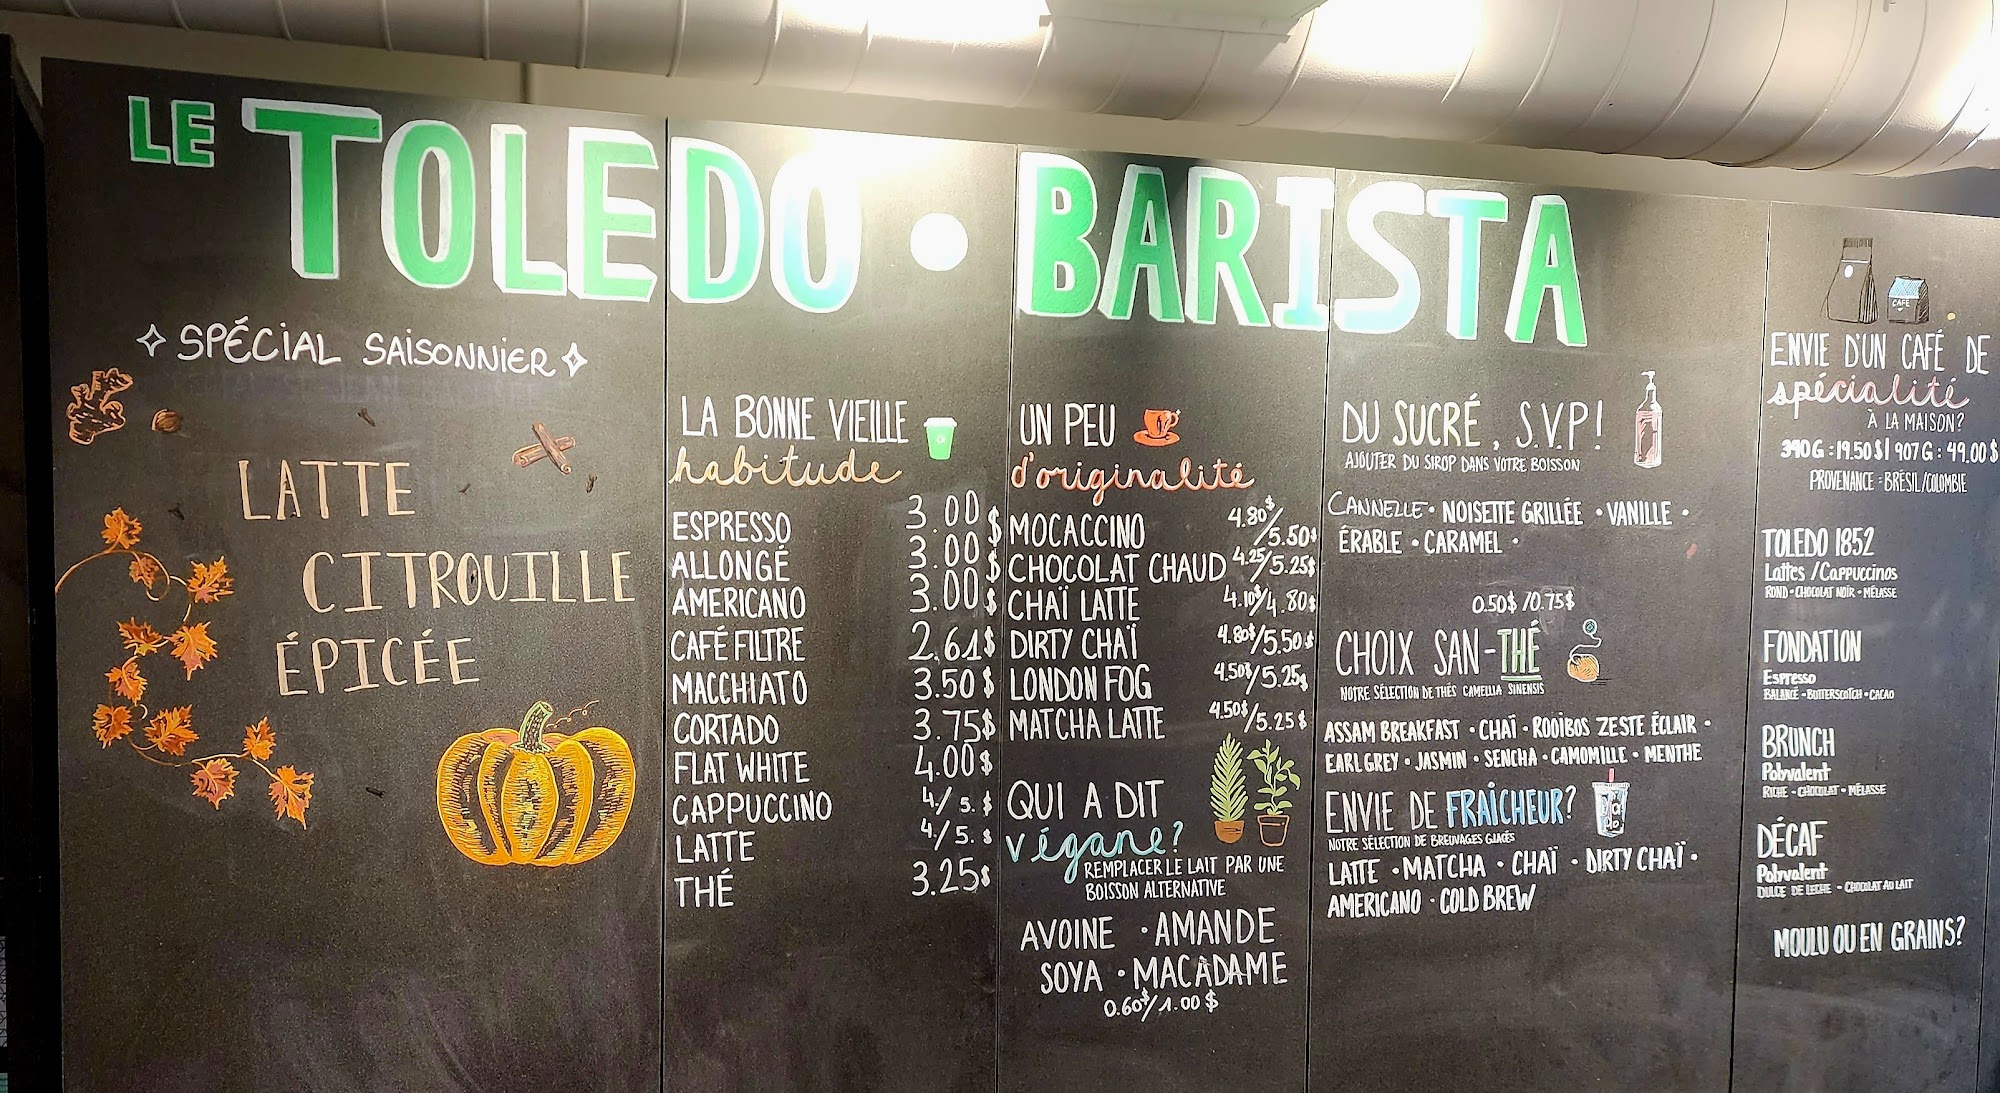 LE TOLEDO • BARISTA
SPÉCIAL SAISONNIER
LATTE
CITROUILLE
ÉPICÉE
LA BONNE VIEILLE
habitude
ESPRESSO 3.00$
ALLONGÉ 3.00$
AMERICANO 3.00$
CAFÉ FILTRE 2.61$
MACCHIATO 3.50$
CORTADO 3.75$
FLAT WHITE 4.00$
CAPPUCCINO 4/5.$
LATTE 4/5.$
THÉ 3.25$
UN PEU
d'originalité
MOCACCINO 4.80$/5.50$
CHOCOLAT CHAUD 4.25/5.25$
CHAÏ LATTE 4.10$/4.80$
DIRTY CHAÏ 4.80$/5.50$
LONDON FOG 4.50$/5.25$
MATCHA LATTE 4.50$/5.25$
QUI A DIT
végane?
REMPLACER LE LAIT PAR UNE
BOISSON ALTERNATIVE
AVOINE • AMANDE
SOYA • MACADAME
0.60$/1.00$
DU SUCRÉ, S.V.P!
AJOUTER DU SIROP DANS VOTRE BOISSON
CANNELLE • NOISETTE GRILLÉE • VANILLE •
ÉRABLE • CARAMEL •
0.50$/0.75$
CHOIX SAN-THÉ
NOTRE SÉLECTION DE THÉS CAMELLIA SINENSIS
ASSAM BREAKFAST • CHAÏ • ROOÏBOS ZESTE ÉCLAIR •
EARL GREY • JASMIN • SENCHA • CAMOMILLE • MENTHE
ENVIE DE FRAÎCHEUR?
NOTRE SÉLECTION DE BREUVAGES GLACÉS
LATTE • MATCHA • CHAÏ • DIRTY CHAÏ •
AMERICANO • COLD BREW
CAFÉ
ENVIE D'UN CAFÉ DE
spécialité
À LA MAISON?
340G : 19.50$ | 907G : 49.00$
PROVENANCE : BRÉSIL/COLOMBIE
TOLEDO 1852
Lattes / Cappuccinos
ROND • CHOCOLAT NOIR • MÉLASSE
FONDATION
Espresso
BALANCÉ • BUTTERSCOTCH • CACAO
BRUNCH
Polyvalent
RICHE • CHOCOLAT • MÉLASSE
DÉCAF
Polyvalent
DULCE DE LECHE • CHOCOLAT AU LAIT
MOULU OU EN GRAINS?